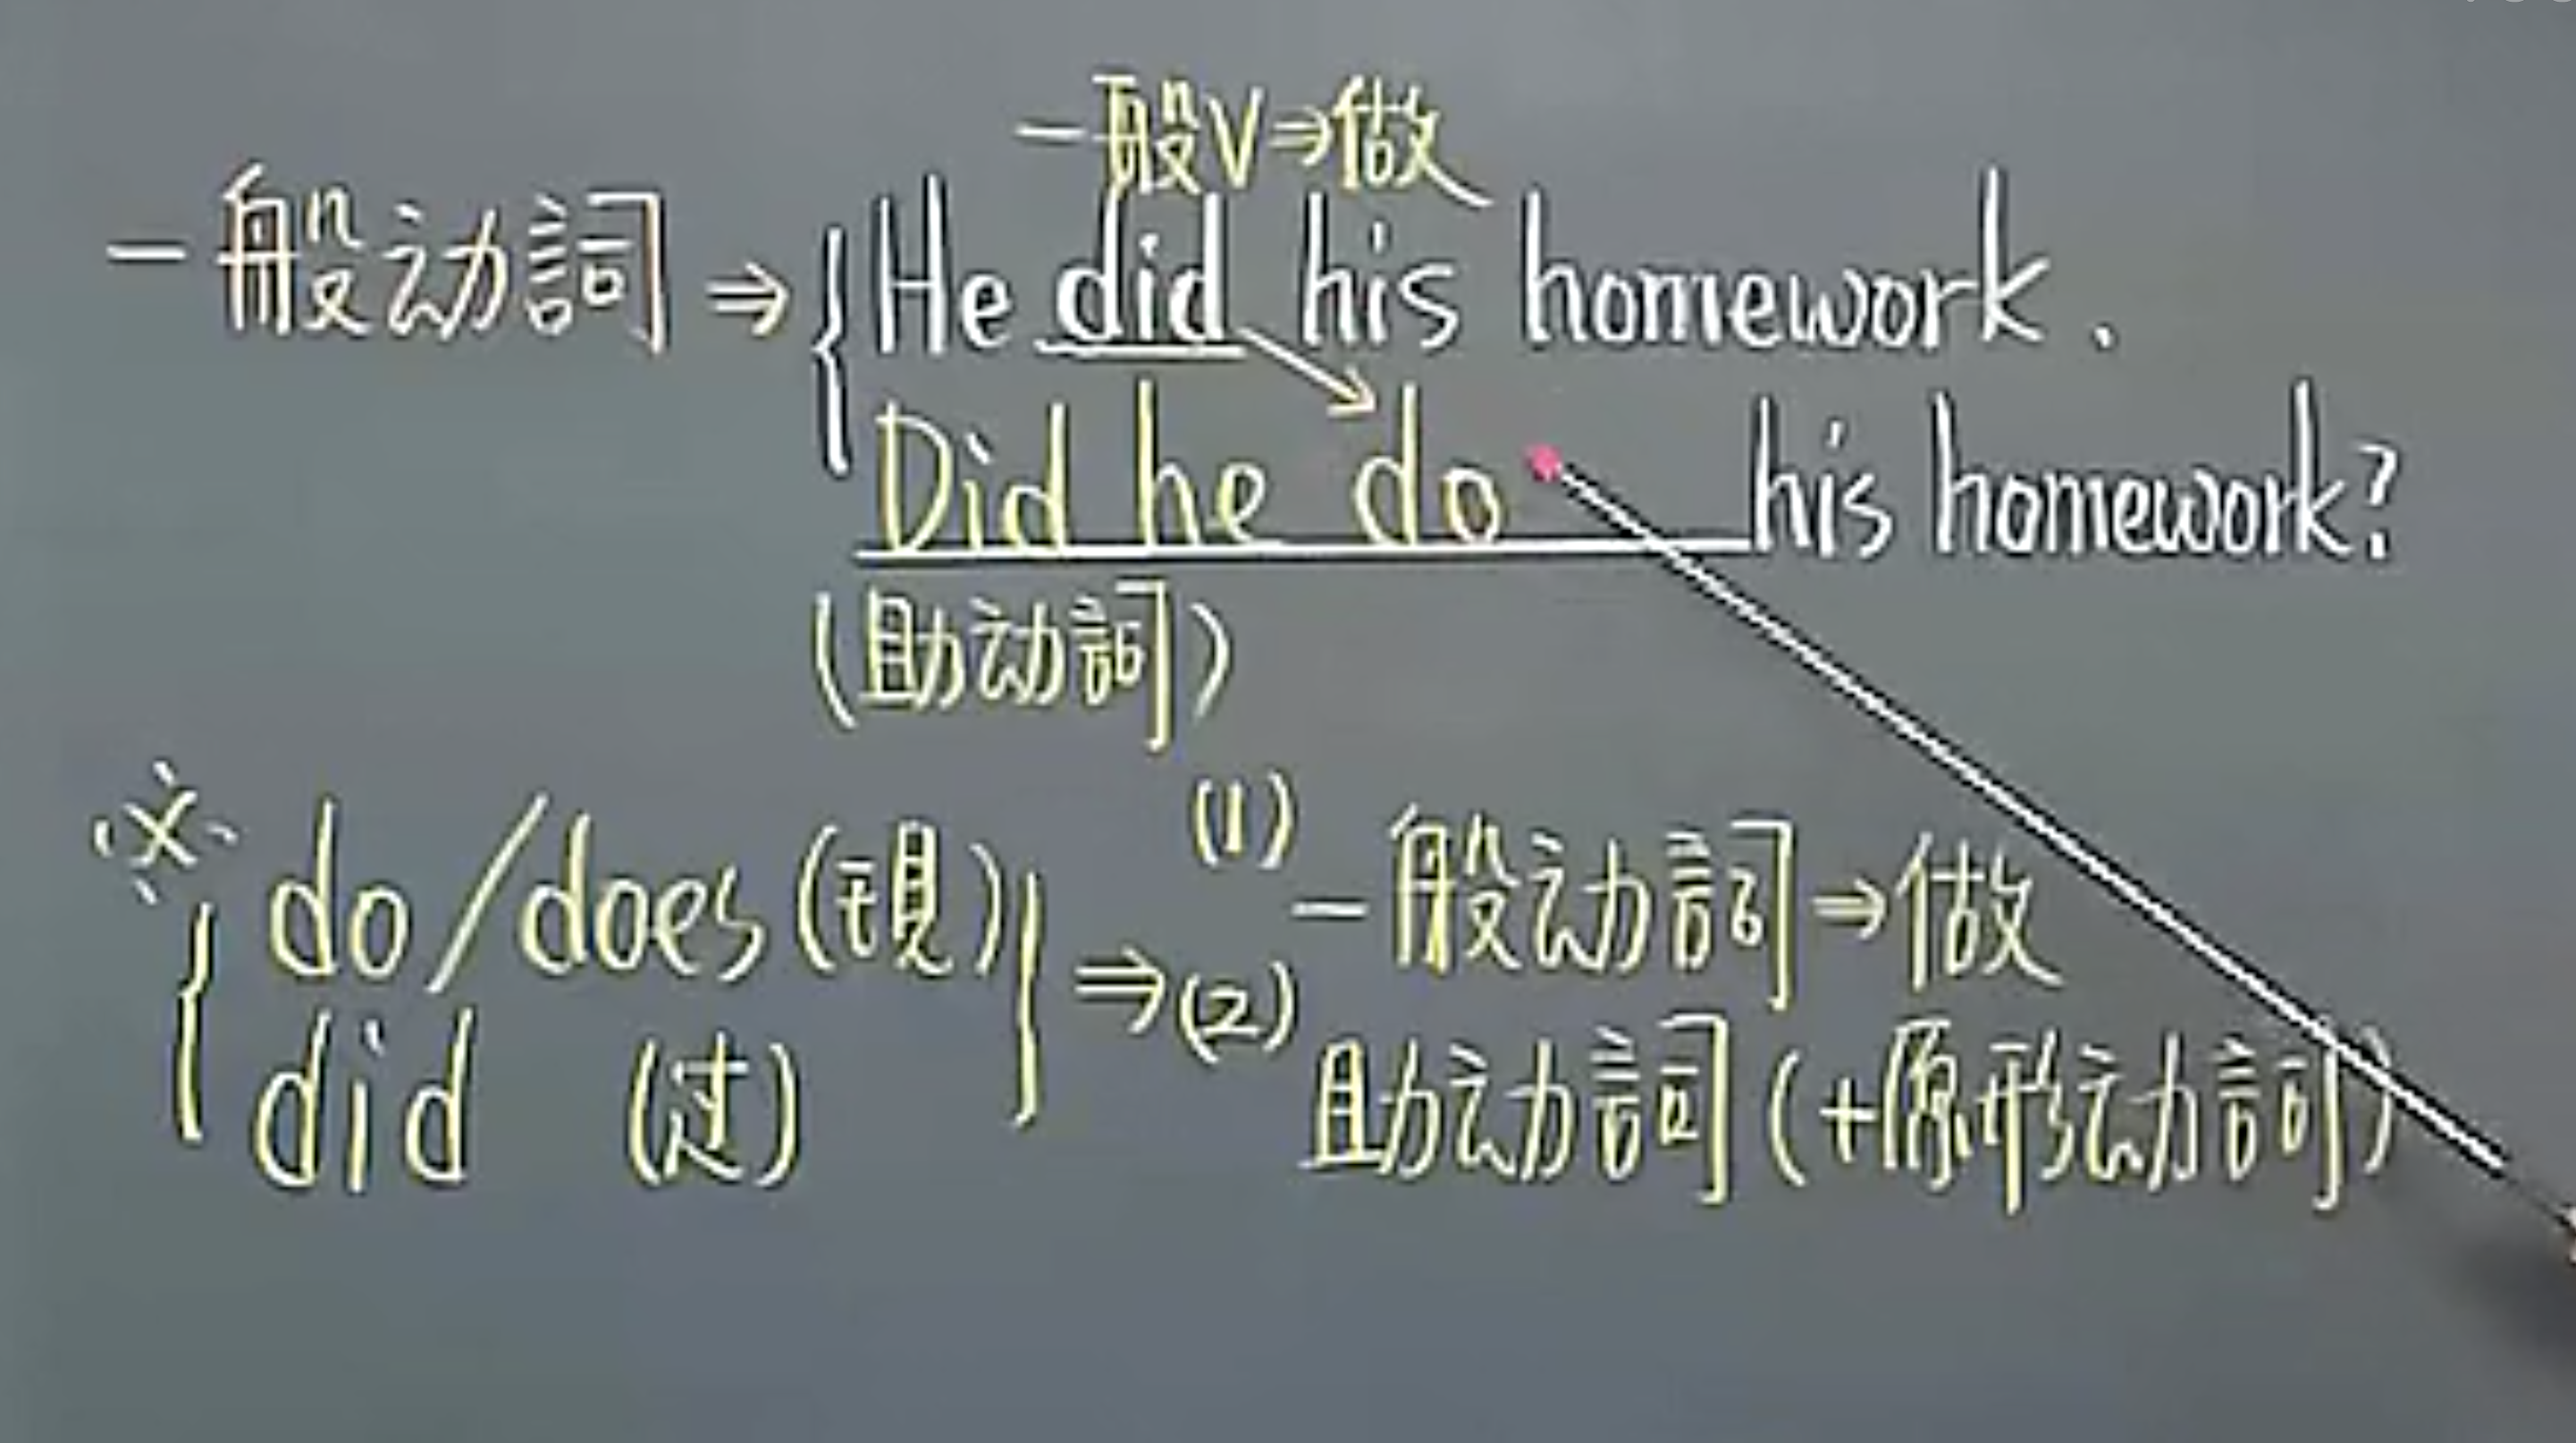 一般V⇒做
一般动詞⇒{He did his homework.
Did he do his homework?
(助动詞)
※
{do/does(現)}⇒(1)一般动詞⇒做
did (过) (2)助动詞(+原形动詞)